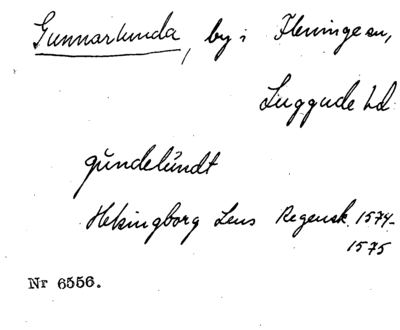 Gunnarlunda, by i Fleninge sn,
Luggude hd
gŭndelŭndt
Helsingborg Lens Regensk. 1574-
1575
Nr 6556.